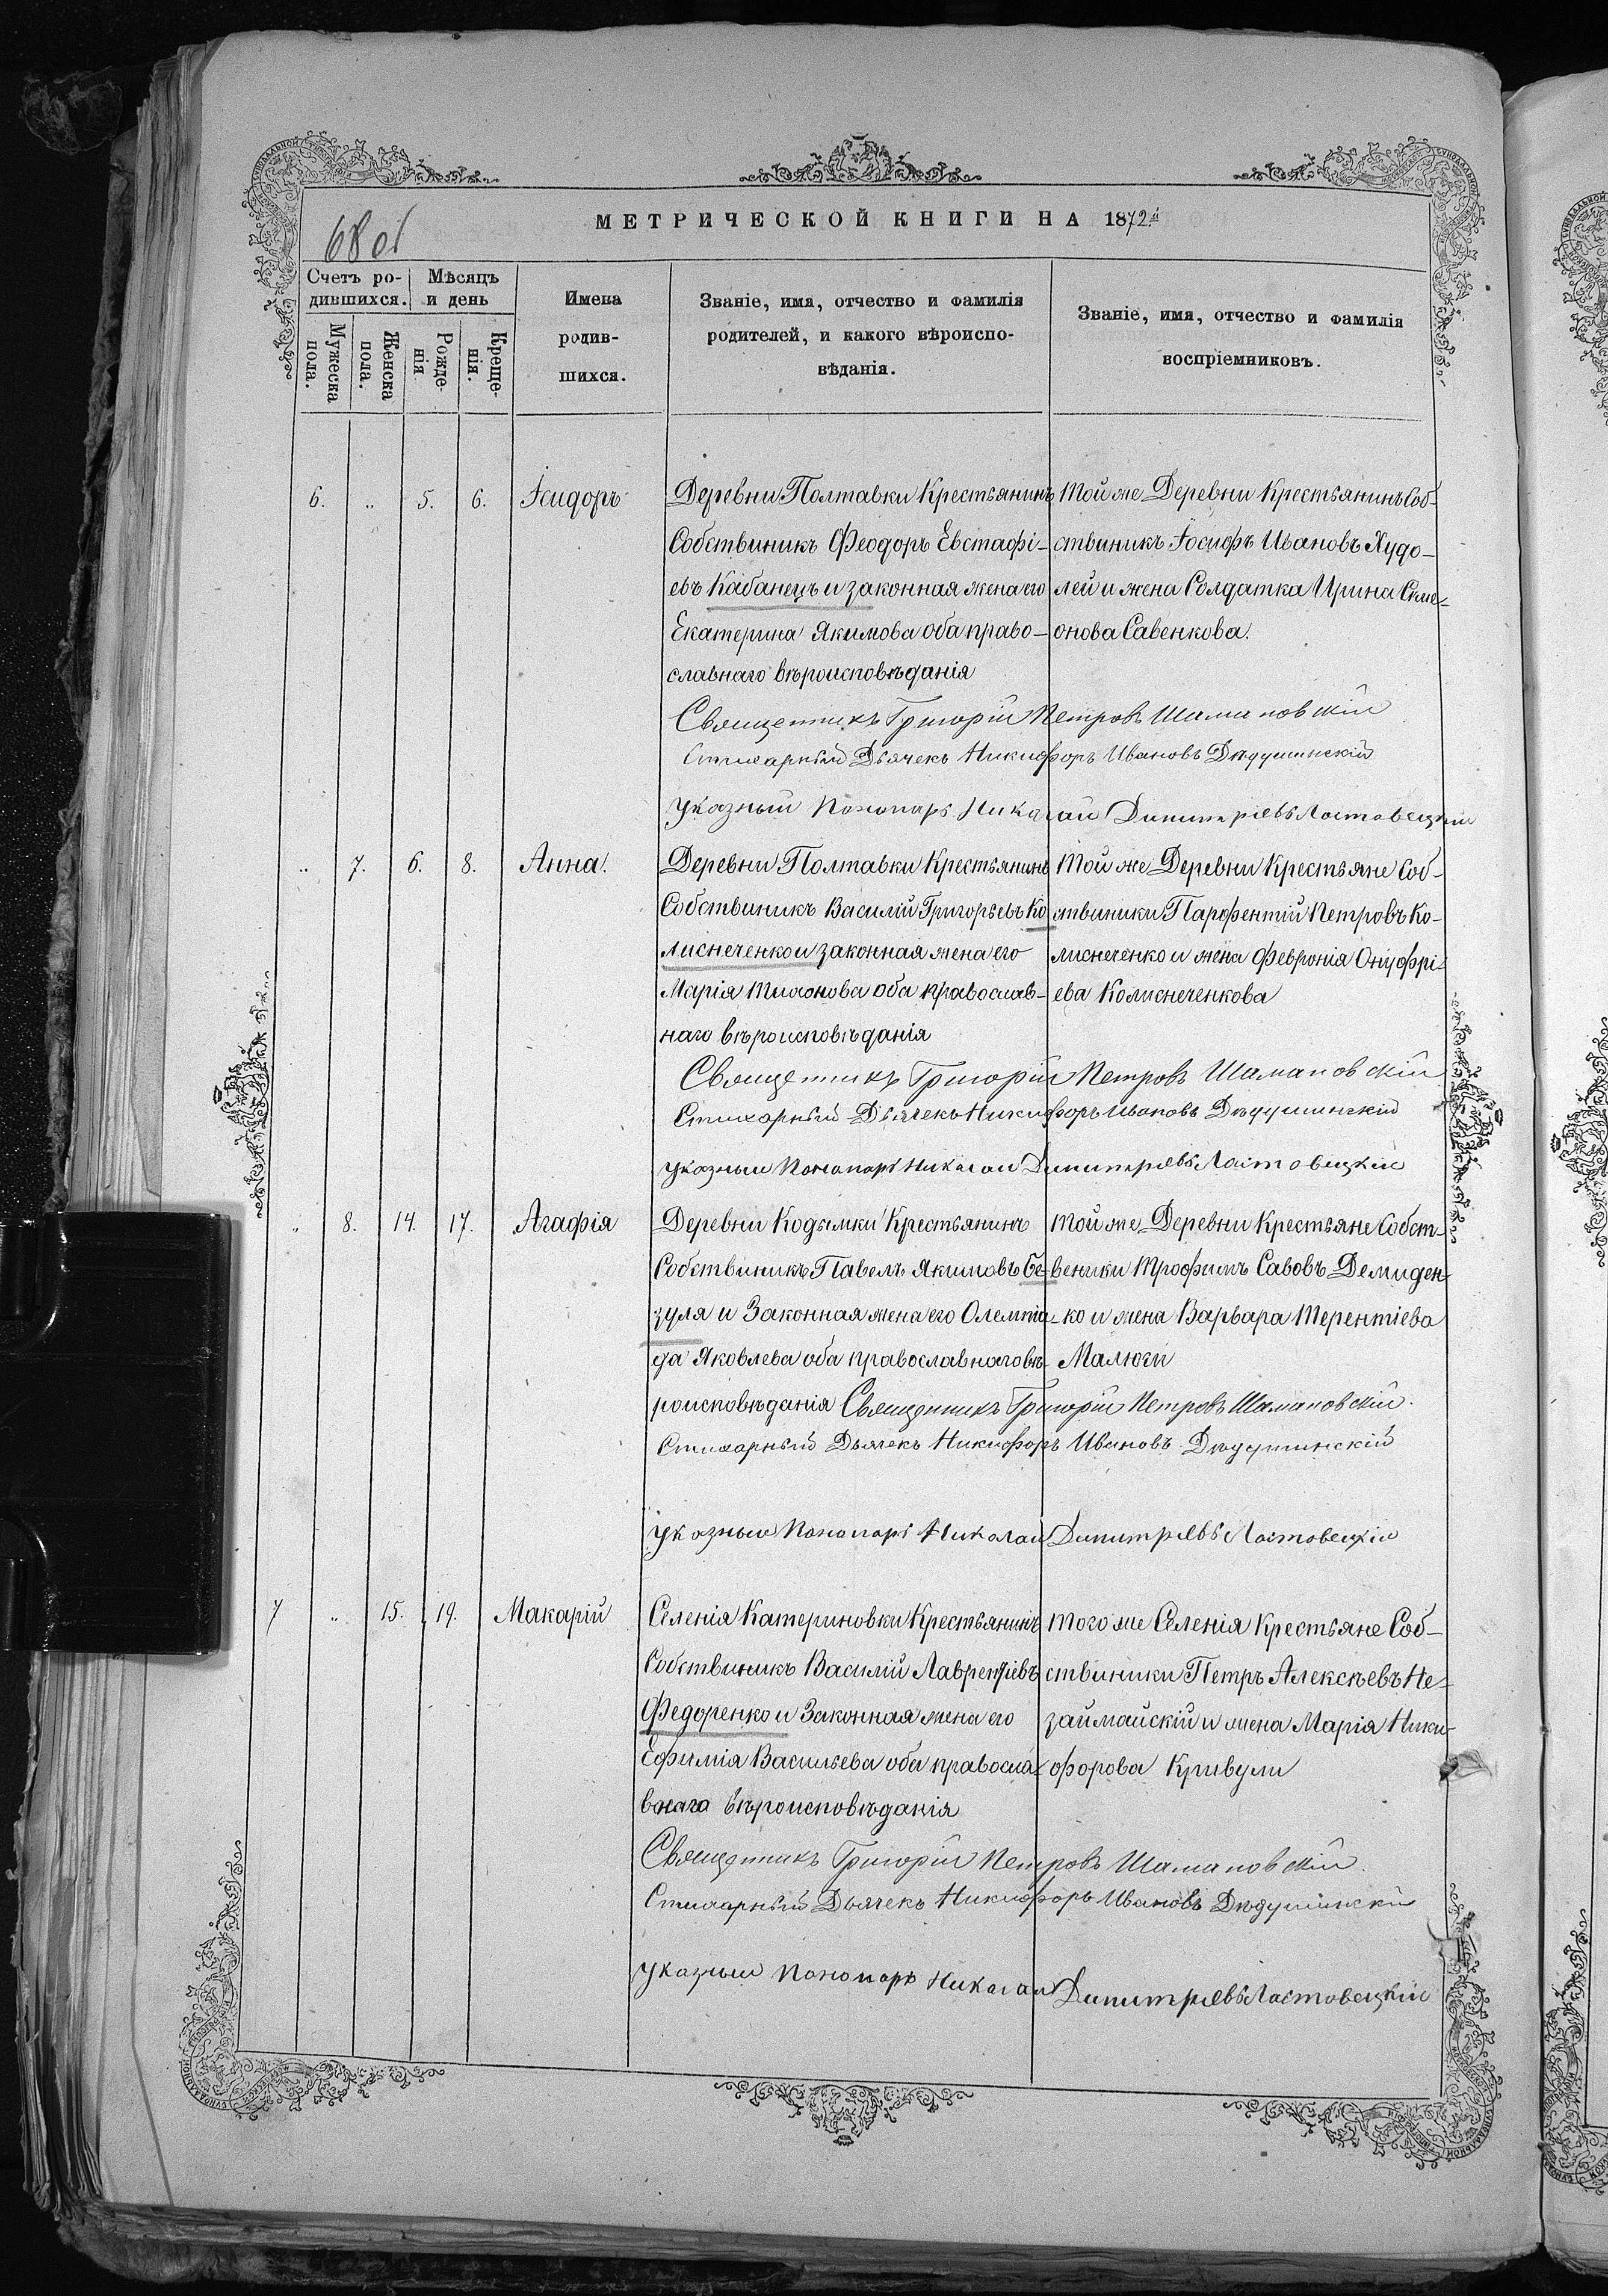 68 об
МЕТРИЧЕСКОЙ КНИГИ НА 1872й
Счетъ ро-
дившихся.
Мѣсяцъ
и день
Мужеска
пола.
Женска
пола.
Рожде-
нія
Креще-
нія.
Имена
родив-
шихся.
Званіе, имя, отчество и фамилія
родителей, и какого вѣроиспо-
вѣданія.
Званіе, имя, отчество и фамилія
воспріемниковъ.
6. „ 5. 6. Ісидоръ
Деревни Полтавки Крестьянинъ
Собствиникъ Феодоръ Евстафі-
евъ Кабанецъ и законная жена его
Екатерина Якимова оба право-
славнаго вѣроисповѣданія
Той же Деревни Крестьянинъ Соб-
ствиникъ Іосифъ Ивановъ Худо-
лей и жена Солдатка Ирина Симе-
онова Савенкова.
Священникъ Григорій Петровъ Шамановскій
Стихарный Дьячекъ Никифоръ Ивановъ Дѣдушинскій
Указный Пономарь Николай Димитріевъ Лостовецкій
„ 7. 6. 8. Анна.
Деревни Полтавки Крестьянинъ
Собствиникъ Василій Григорьевъ Ко
лисниченко и законная жена его
Марія Тихонова оба православ-
наго вѣроисповѣданія
Той же Деревни Крестьяне Соб-
ствиники Парфентій Петровъ Ко-
лисниченко и жена Февронія Онуфрі-
ева Колисниченкова
Священникъ Григорій Петровъ Шамановскій
Стихарный Дьячекъ Никифоръ Ивановъ Дѣдушинскій
Указный Пономарь Николай Димитріевъ Лостовецкій
„ 8. 14. 17. Агафія
Деревни Кодымки Крестьянинъ
Собствиникъ Павелъ Якимовъ Бе-
зуля и Законная жена его Олемпіа-
да Яковлева оба православнаго вѣ-
роисповѣданія
Той же Деревни Крестьяне Собст-
веники Трофимъ Савовъ Демиден-
ко и жена Варвара Терентіева
Малюги
Священникъ Григорій Петровъ Шамановскій.
Стихарный Дьячекъ Никифоръ Ивановъ Дѣдушинскій
Указный Пономарь Николай Димитріевъ Лостовецкій
7 „ 15. 19. Макарій
Селенія Катериновки Крестьянинъ
Собствиникъ Василій Лаврентіевъ
Федоренко и Законная жена его
Ефимія Васильева оба правосла-
внаго вѣроисповѣданія
Того же Селенія Крестьяне Соб-
ствиники Петръ Алексѣевъ Не-
займайскій и жена Марія Ники-
форова Кривули
Священникъ Григорій Петровъ Шамановскій.
Стихарный Дьячекъ Никифоръ Ивановъ Дѣдушинскій
Указный Пономарь Николай Димитріевъ Лостовецкій